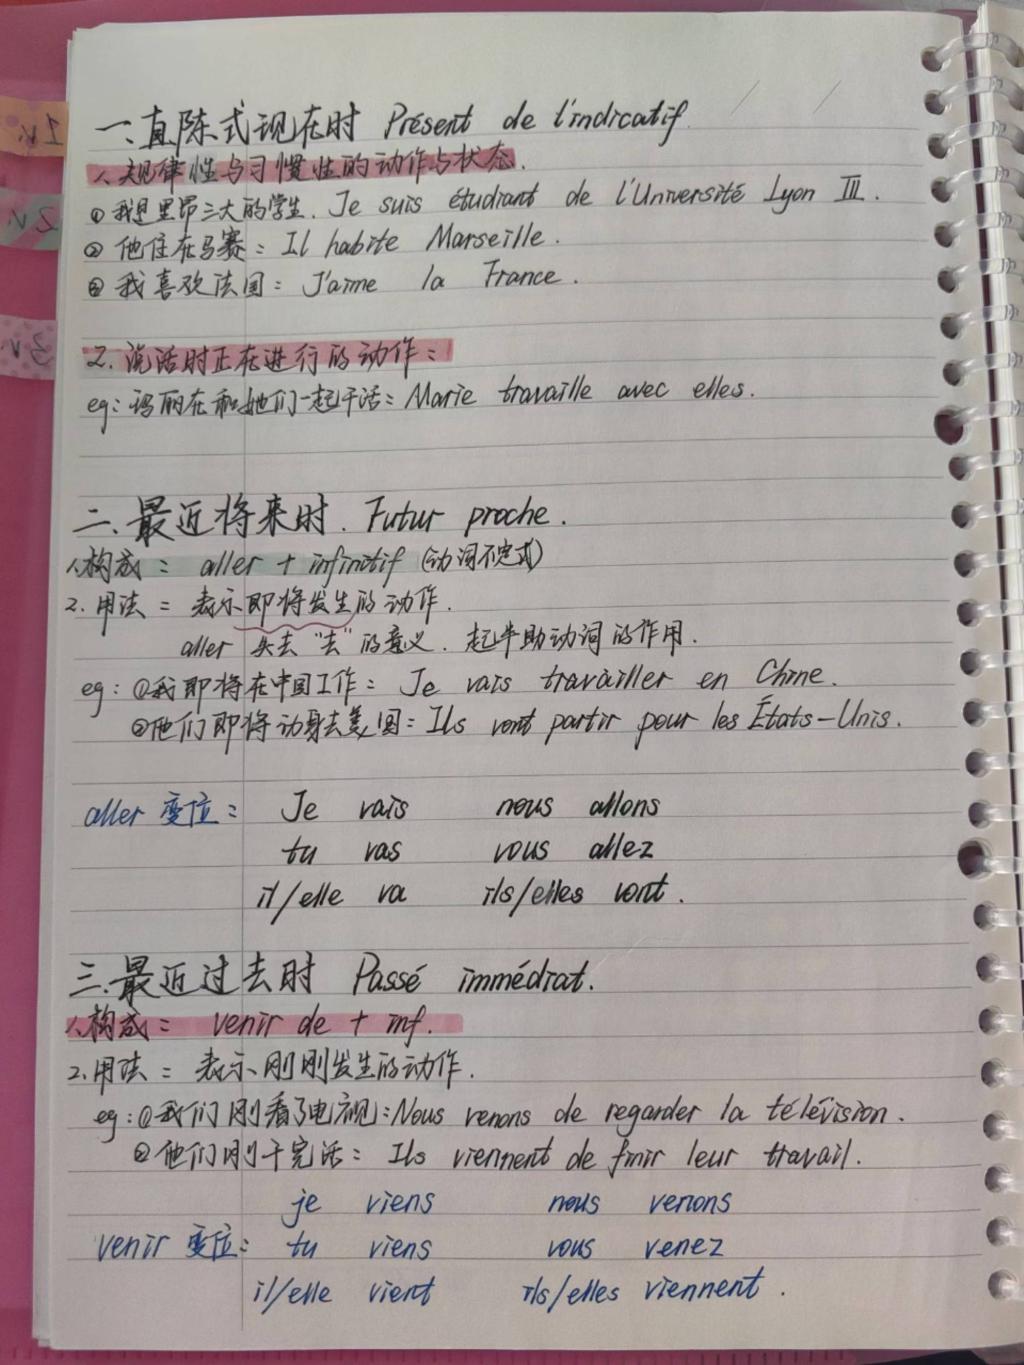 一、直陈式现在时 Présent de l'indicatif.
1、规律性与习惯性的动作与状态.
① 我是里昂三大的学生. Je suis étudiant de l'Université Lyon III.
② 他住在马赛: Il habite Marseille.
③ 我喜欢法国: J'aime la France.
2. 说话时正在进行的动作:
eg: 玛丽在和她们一起干活: Marie travaille avec elles.
二、最近将来时. Futur proche.
1、构成: aller + infinitif (动词不定式)
2. 用法: 表示即将发生的动作.
aller 失去"去"的意义. 起半助动词的作用.
eg: ①我即将在中国工作: Je vais travailler en Chine.
②他们即将动身去美国: Ils vont partir pour les États-Unis.
aller 变位: Je vais nous allons
tu vas vous allez
il/elle va ils/elles vont.
三、最近过去时 Passé immédiat.
1、构成: venir de + inf.
2. 用法: 表示刚刚发生的动作.
eg: ①我们刚看了电视: Nous venons de regarder la télévision.
②他们刚干完活: Ils viennent de finir leur travail.
je viens nous venons
venir 变位: tu viens vous venez
il/elle vient ils/elles viennent.
1V.
2V.
3V.